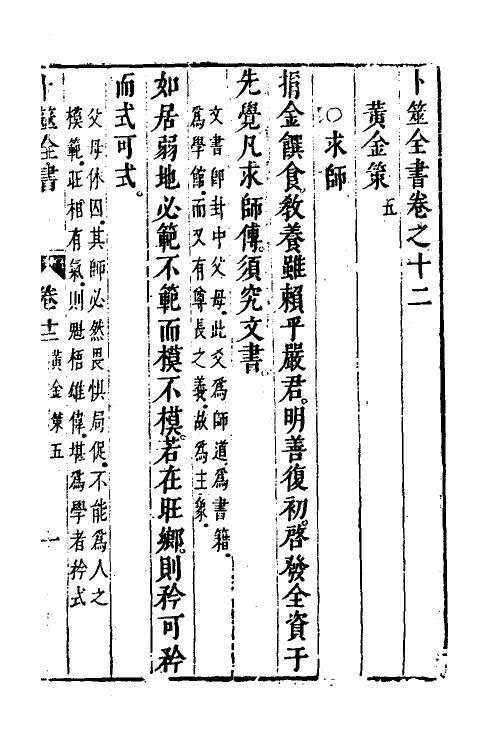 卜筮全書卷之十二
黃金策五
○求師
捐金饌食。敎養雖賴乎嚴君。明善復初。啓發全資于
先覺。凡求師傅。須究文書。
文書卽卦中父母。此爻爲師道。爲書籍。
爲學館。而又有尊長之義。故爲主象。
如居弱地。必範不範而模不模。若在旺鄉。則矜可矜
而式可式。
父母休囚。其師必然畏惧局促。不能爲人之
模範。旺相有氣。則魁梧雄偉。堪爲學者矜式
卜筮全書 卷十二 黃金策五 一